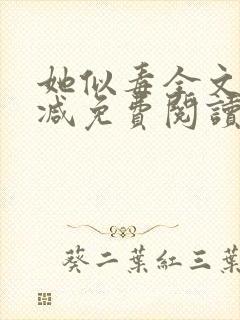 她似毒全文
减免費閱讀
葵二葉紅三葉